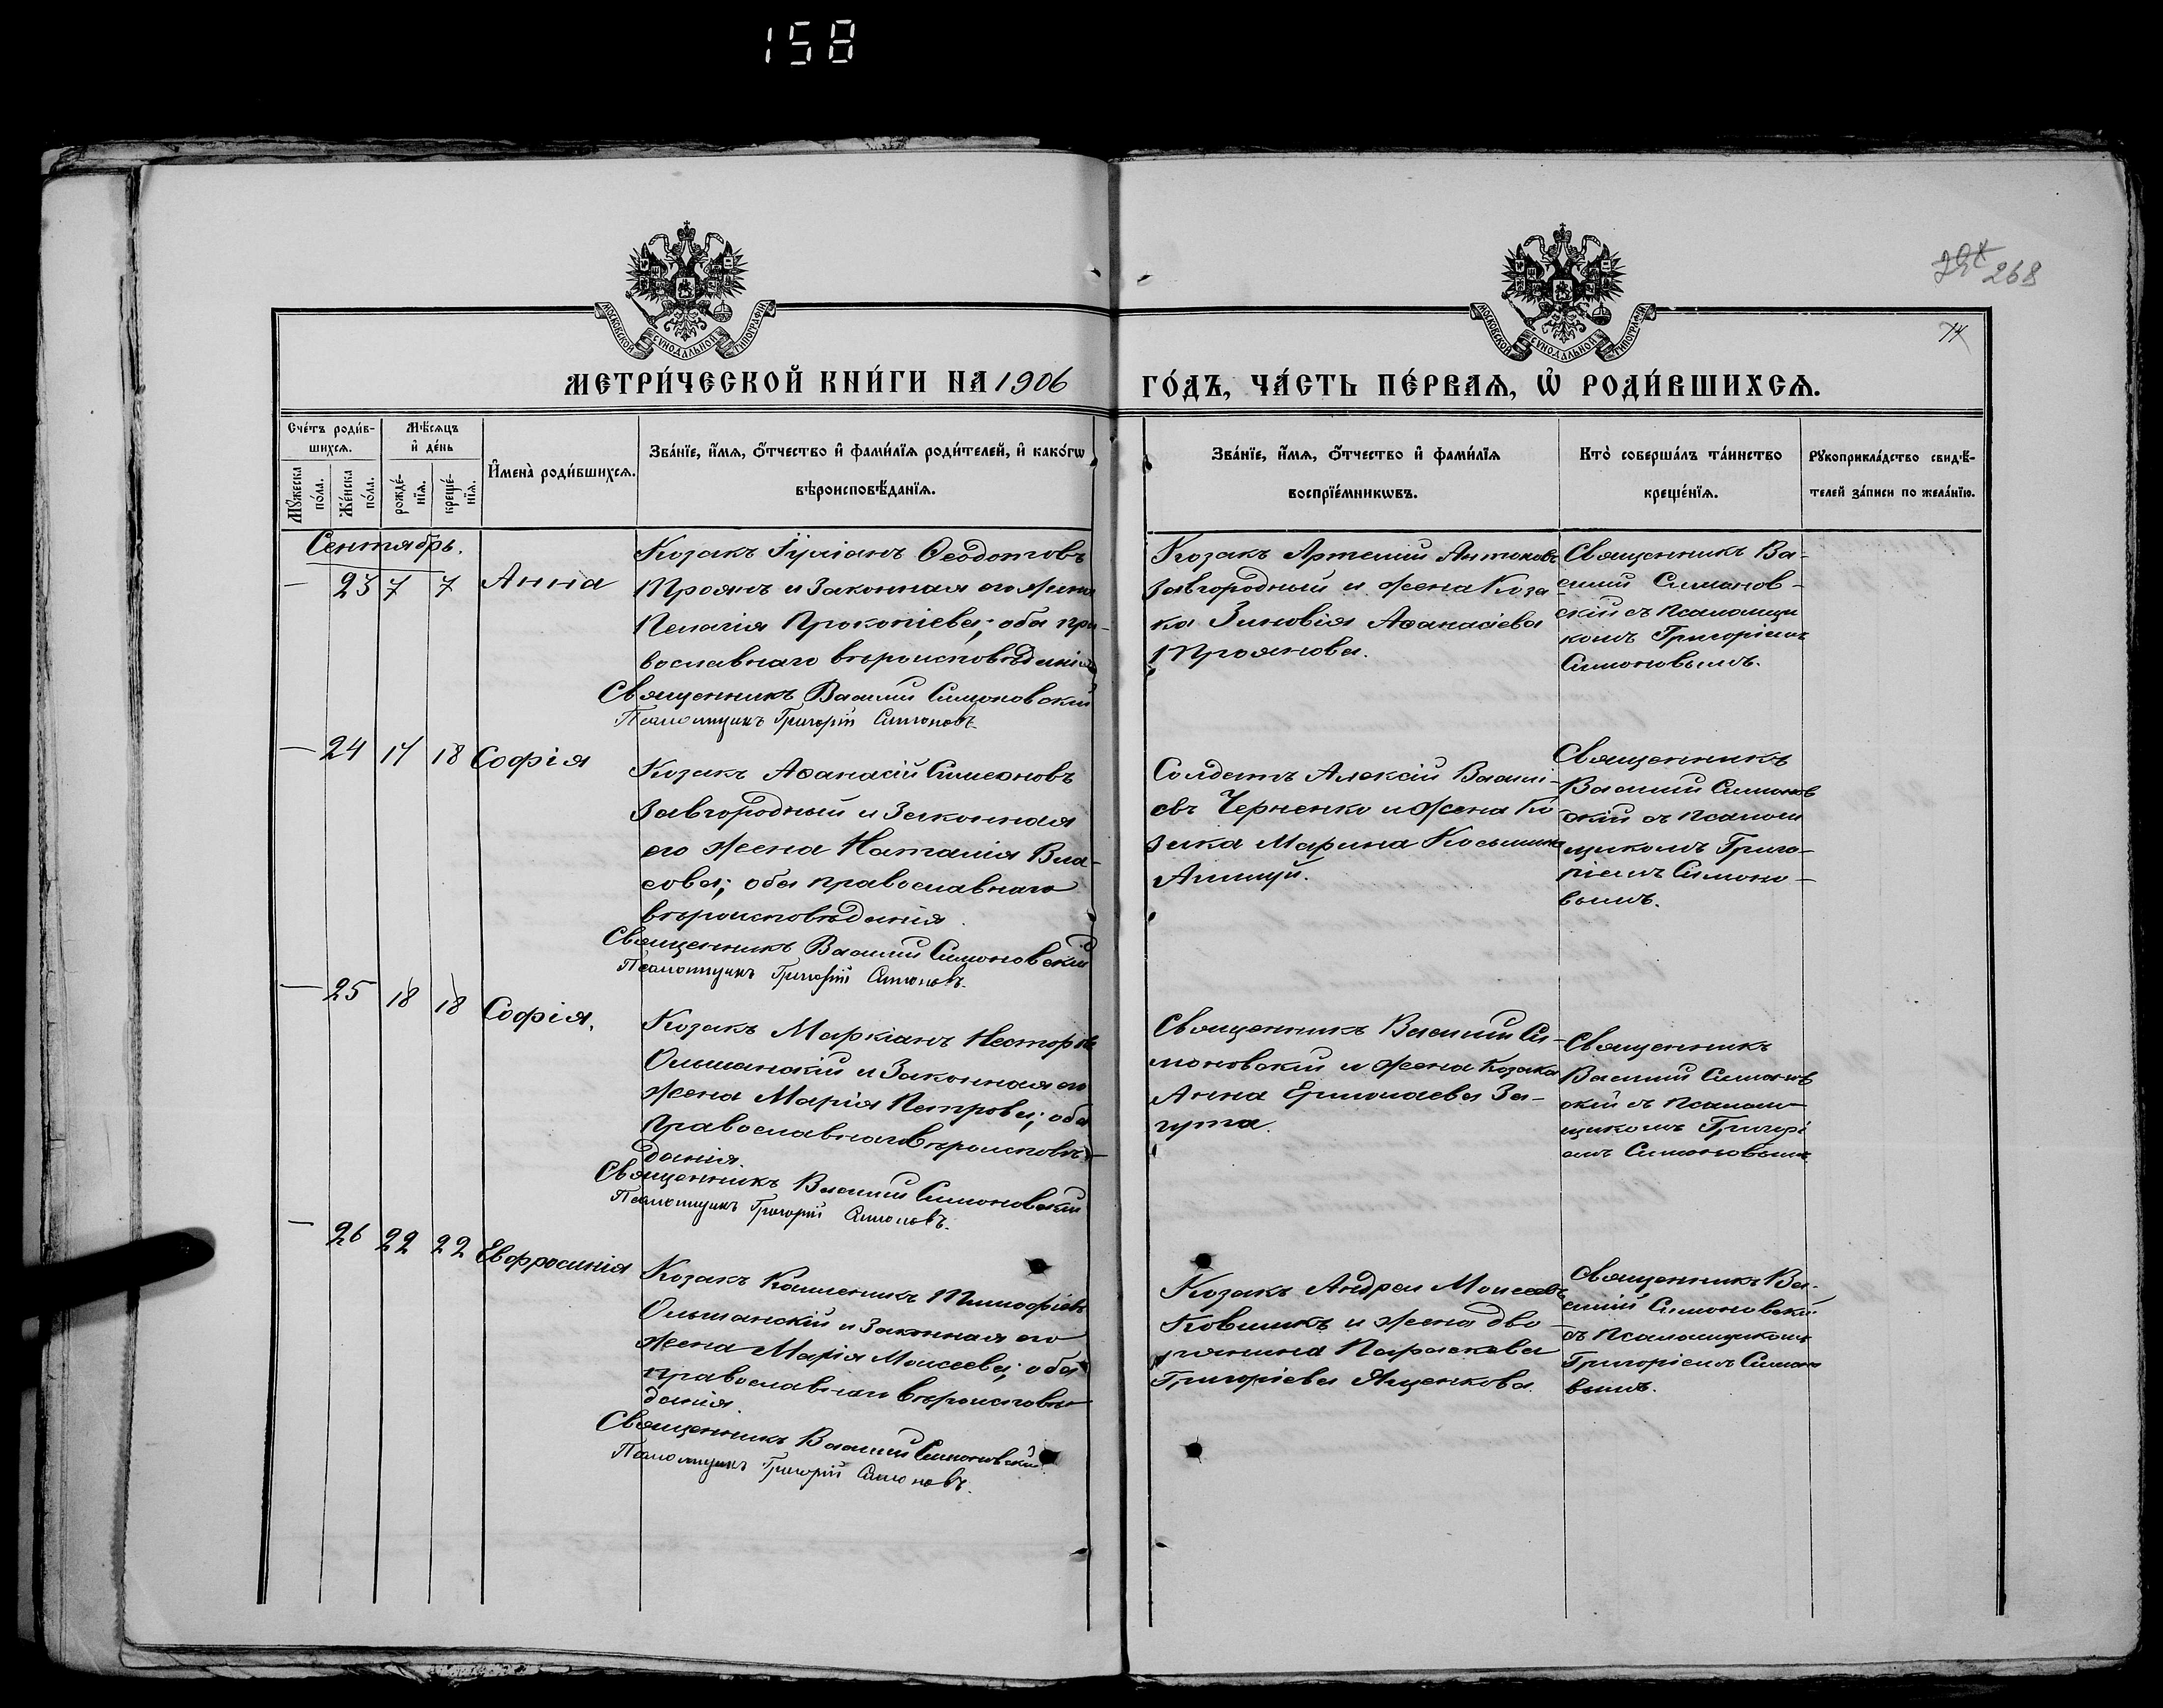 158
268
74
МОСКОВСКОЙ СУНОДАЛЬНОЙ ТИПОГРАФІИ
МОСКОВСКОЙ СУНОДАЛЬНОЙ ТИПОГРАФІИ
МЕТРИ́ЧЕСКОЙ КНИ́ГИ НА 1906
ГО́ДЪ, ЧА́СТЬ ПЕ́РВАѦ, Ѡ҆ РОДИ́ВШИХСѦ.
Сче́тъ роди́в-
шихсѧ.
Мꙋ́жеска
по́ла.
Же́нска
по́ла.
Мѣ́сѧцъ
и҆ де́нь
рожде́-
нїѧ.
креще́-
нїѧ.
И҆мена̀ роди́вшихсѧ.
Зва́нїе, и҆́мѧ, ѻ҆́тчество и҆ фами́лїѧ роди́телей, и҆ како́гѡ
вѣроисповѣ́данїѧ.
Зва́нїе, и҆́мѧ, ѻ҆́тчество и҆ фами́лїѧ
воспрїе́мникѡвъ.
Кто̀ соверша́лъ та́инство
креще́нїѧ.
Рꙋкоприкла́дство свидѣ́-
телей за́писи по жела́нїю.
Сентябрь.
— 23 7 7 Анна
Козакъ Іуліанъ Ѳеодотовъ
Троянъ и законная его жена
Пелагія Прокопіева; оба пра-
вославнаго вѣроисповѣданія
Священникъ Василий Симоновский
Псаломщикъ Григорій Симоновъ.
Козакъ Артемий Антоновъ
Завгородный и жена Коза-
ка Зиновія Аѳанасіева
Троянова.
Священникъ Ва-
силий Симонов-
скій съ псаломщи
комъ Григоріемъ
Симоновымъ.
— 24 17 18 Софія
Козакъ Аѳанасій Симеоновъ
Завгородный и законная
его жена Наталія Вла-
сова; оба православнаго
вѣроисповѣданія.
Священникъ Василий Симоновский
Псаломщикъ Григорій Симоновъ.
Солдатъ Алексій Васи-
евъ Черненко и жена Ко
зака Марина Косьмина
Священникъ
Василий Симонов
скій съ псалом
щикомъ Григо-
ріемъ Симоно-
вымъ.
— 25 18 18 Софія.
Козакъ Маркіанъ Несторовъ
Ольшанскій и законная его
жена Марія Петрова; оба
православнаго вѣроисповѣ-
данія.
Священникъ Василий Симоновский
Псаломщикъ Григорій Симоновъ.
Священникъ Василий Си-
моновский и жена козака
Анна Ермолаева За-
гута.
Священникъ
Василий Симонов
скій съ псалом-
щикомъ Григорі
емъ Симоновымъ
— 26 22 22 Евфросинія
Козакъ Каллиникъ Тимофіевъ
Ольшанскій и законная его
жена Марія Моисеева; оба
православнаго вѣроисповѣ
данія.
Священникъ Василий Симоновский.
Псаломщикъ Григорій Симоновъ.
Козакъ Андрей Моисеевъ
Ковшикъ и жена дво-
рянина Параскева
Григоріева Яценкова.
Священникъ Ва-
силій Симоновскій
съ псаломщикомъ
Григоріемъ Симоно
вымъ.